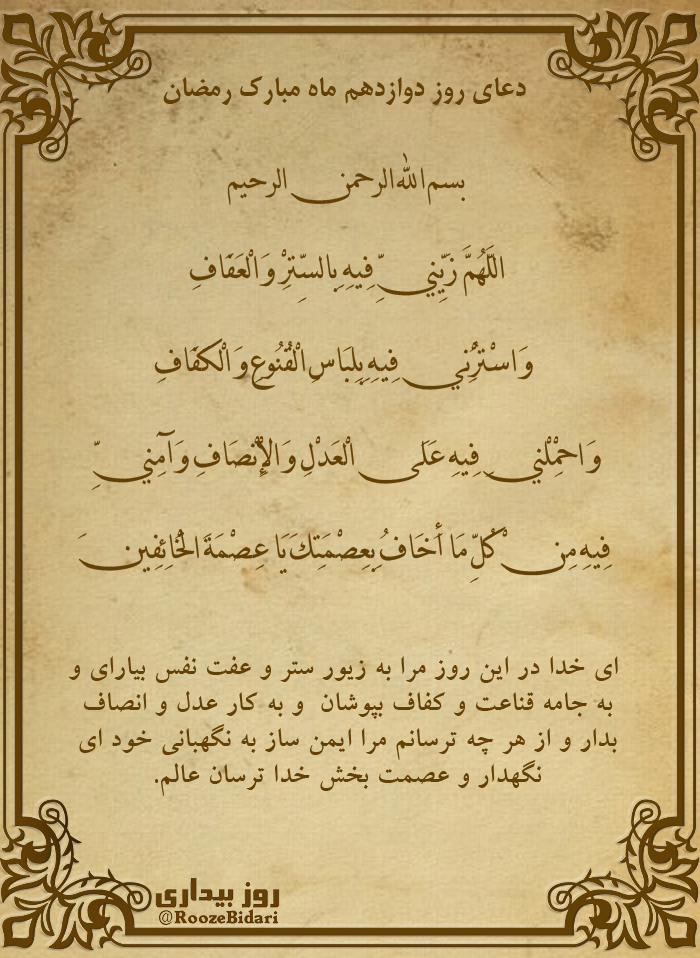 دعای روز دوازدهم ماه مبارک رمضان
بسم الله الرحمن الرحیم
اللَّهُمَّ زَیِّنِّي فِيهِ بِالسِّتْرِ وَ الْعَفَافِ
وَ اسْتُرْنِي فِيهِ بِلِبَاسِ الْقُنُوعِ وَ الْكَفَافِ
وَ احْمِلْنِي فِيهِ عَلَى الْعَدْلِ وَ الْإِنْصَافِ وَ آمِنِّي
فِيهِ مِنْ كُلِّ مَا أَخَافُ بِعِصْمَتِكَ يَا عِصْمَةَ الْخَائِفِينَ
ای خدا در این روز مرا به زیور ستر و عفت نفس بیارای و
به جامه قناعت و کفاف بپوشان و به کار عدل و انصاف
بدار و از هر چه ترسانم مرا ایمن ساز به نگهبانی خود ای
نگهدار و عصمت بخش خدا ترسان عالم.
روز بیداری
@RoozeBidari